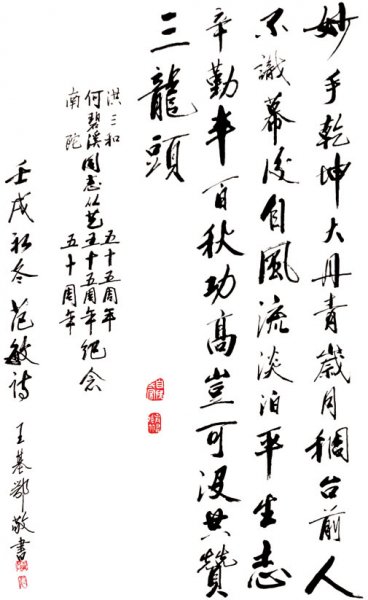 妙手乾坤大丹青歲月稠台前人
不識幕後自風流淡泊平生志
辛勤半百秋功高豈可没共贊
三龍頭
洪三和 五十五周年
何碧溪同志从艺五十五周年纪念
南陀 五十周年
壬戌初冬 范敏诗 王基鄂敬書